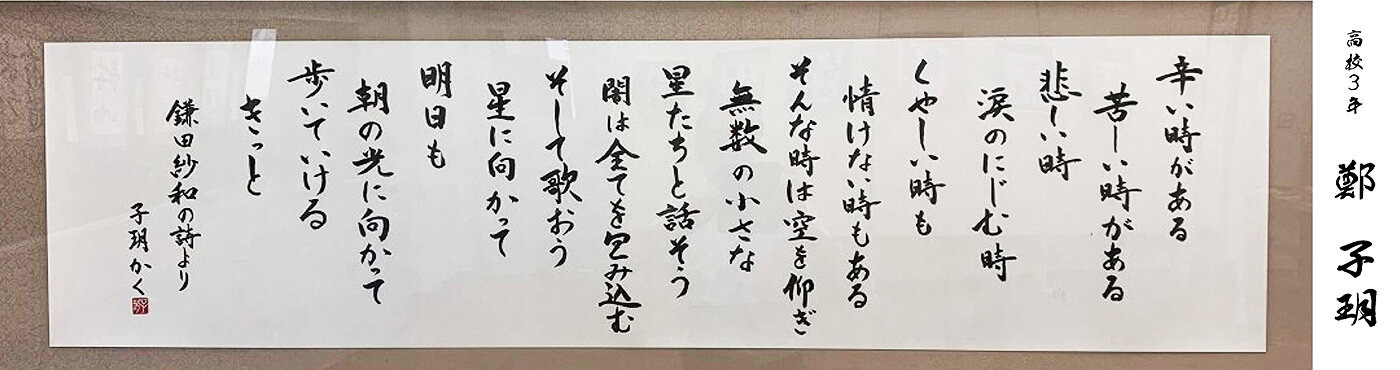 高校3年 鄭 子玥
辛い時がある
苦しい時がある
悲しい時
涙のにじむ時
くやしい時も
情けない時もある
そんな時は空を仰ぎ
無数の小さな
星たちと話そう
闇は全てを包み込む
そして歌おう
星に向かって
明日も
朝の光に向かって
歩いていける
きっと
鎌田紗和の詩より
子玥かく